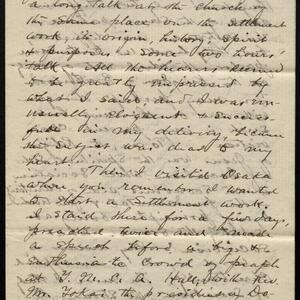 a long talk at the church of
the same place on the settlement
work, its origin, history, spirit
& purposes — some two hours'
talk. All the hearers seemed
to be greatly impressed by
what I said, and I was un-
usually eloquent & success-
ful in my delivery, because
the subject was dear to my
heart.
Then I visited Osaka
where, you remember, I wanted
to start a Settlement work.
I staid there for a few days,
preached twice and made
a speech before a big &
enthusiastic crowd of people
at Y. M. C. A. Hall, with Rev.
Mr. the president of